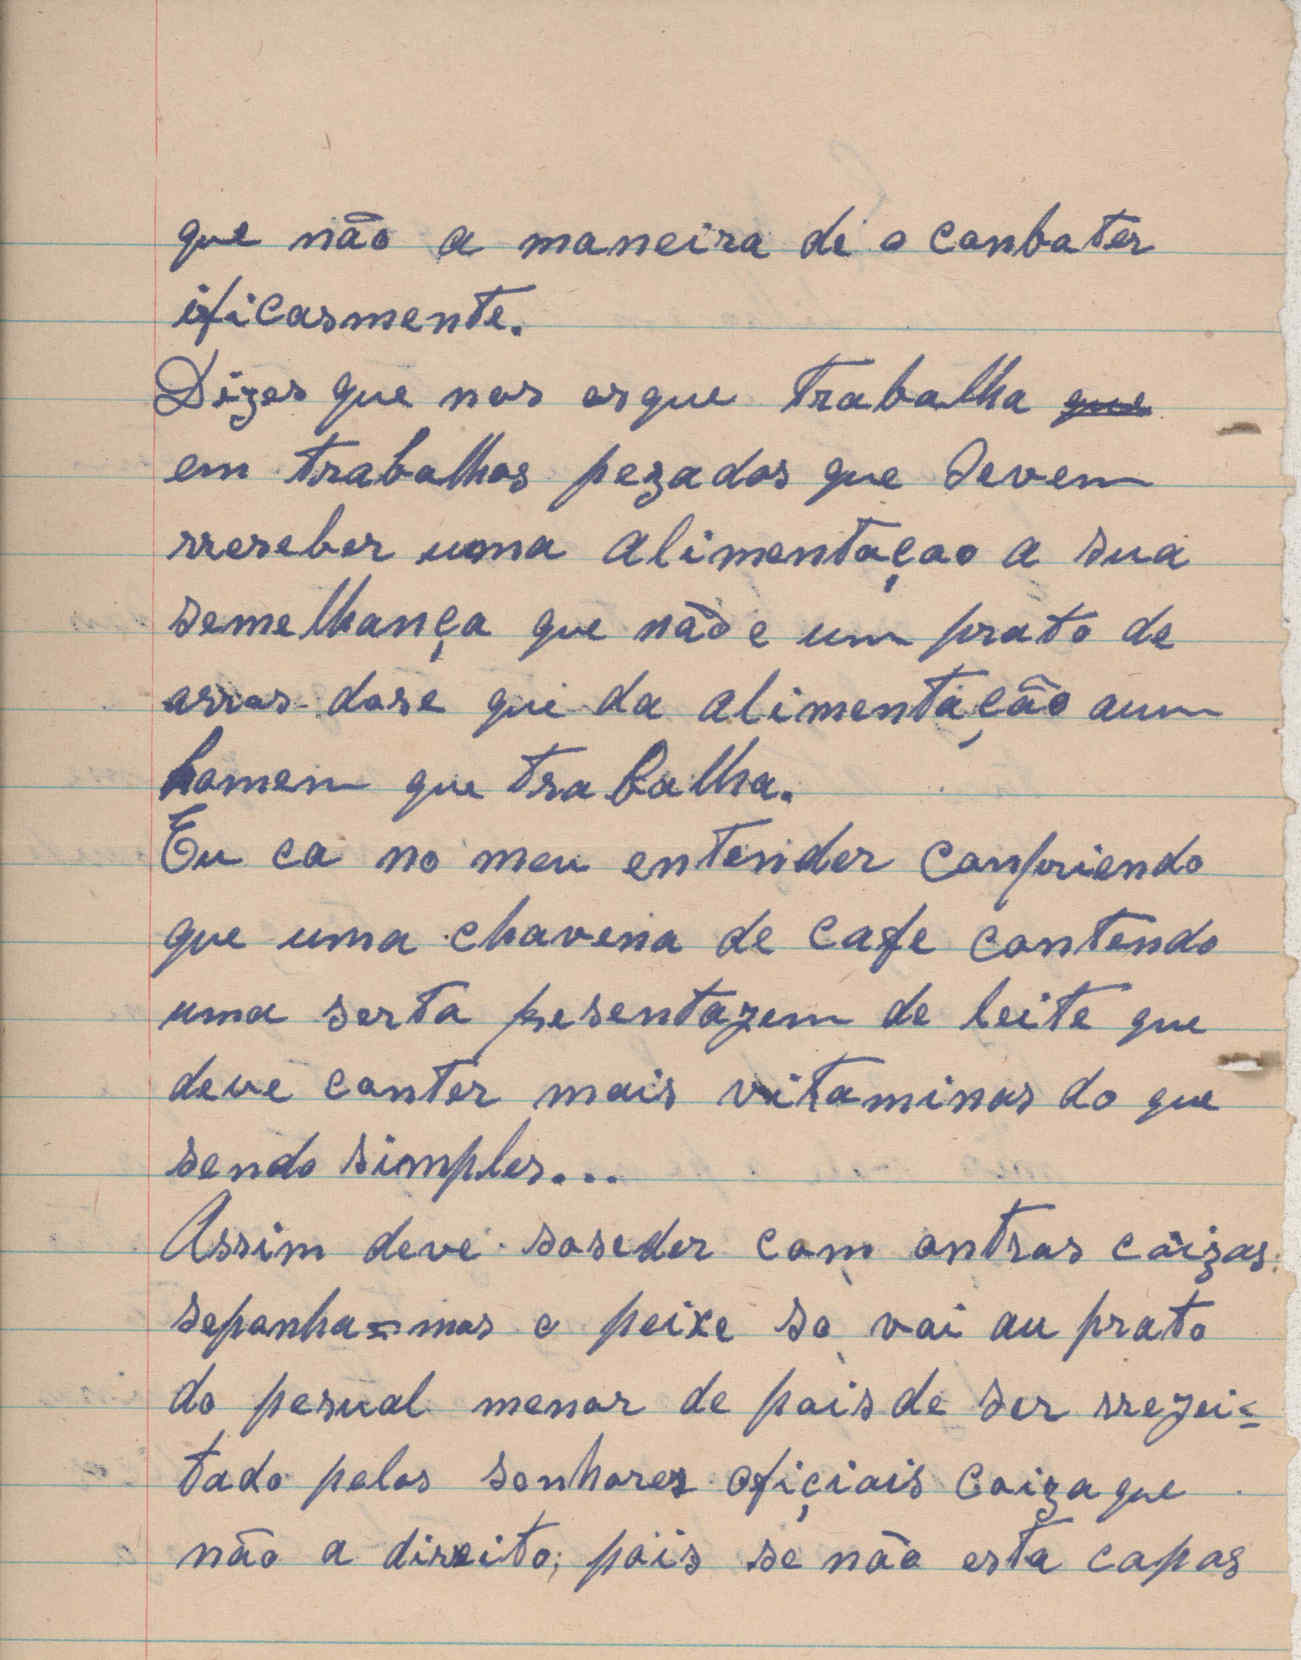 que não a maneira de o conbater
ificasmente.
Dizes que nos os que trabalha que
em trabalhos pezados que devem
rreseber uma alimentaçao a sua
semelhança que não e um prato de
arros dose que da alimentação aum
homem que trabalha.
Eu ca no meu entender conpriendo
que uma chavena de cafe contendo
uma serta presentazem de leite que
deve conter mais vitaminas do que
sendo simples...
Assim deve soseder com outras coizas.
seponha=mos o peixe so vai au prato
do pesual menor de pois de ser rrezei=
tado pelos senhores ofiçiais coiza que
não a direito, pois se não esta capas